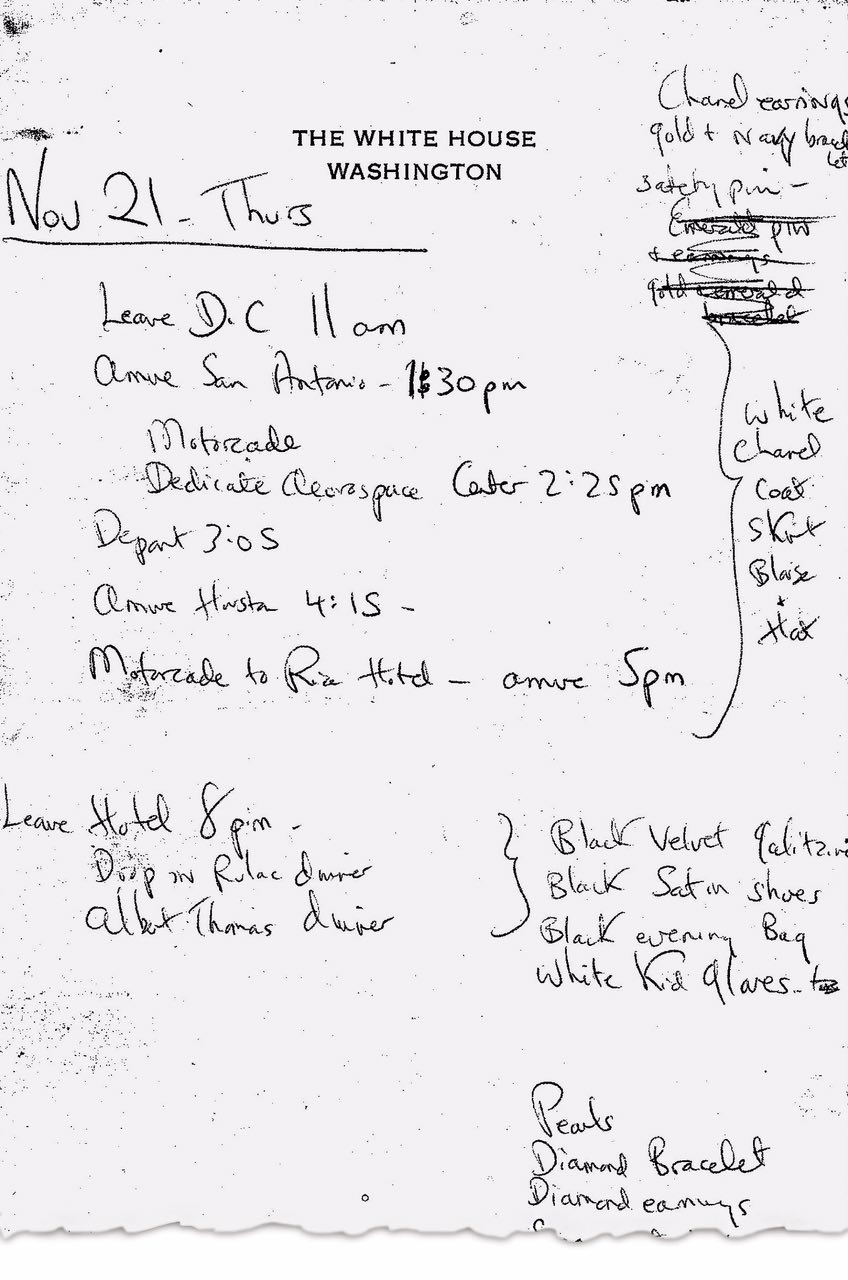 THE WHITE HOUSE
WASHINGTON
Nov 21 - Thurs
Leave D.C 11 am
Arrive San Antonio - 1:30 pm
Motorcade
Dedicate Aerospace Center 2:25 pm
Depart 3:05
Arrive Houston 4:15 -
Motorcade to Rice Hotel - arrive 5pm
Chanel earrings
gold + Navy bracelet
safety pin -
Emerald pin
+ earrings
gold + emerald
bracelet
White
Chanel
Coat
Skirt
Blouse
+
Hat
Leave Hotel 8 pm -
Drop in Rulac dinner
Albert Thomas dinner
Black Velvet Galitzine
Black Satin shoes
Black evening Bag
White Kid gloves -
Pearls
Diamond Bracelet
Diamond earrings